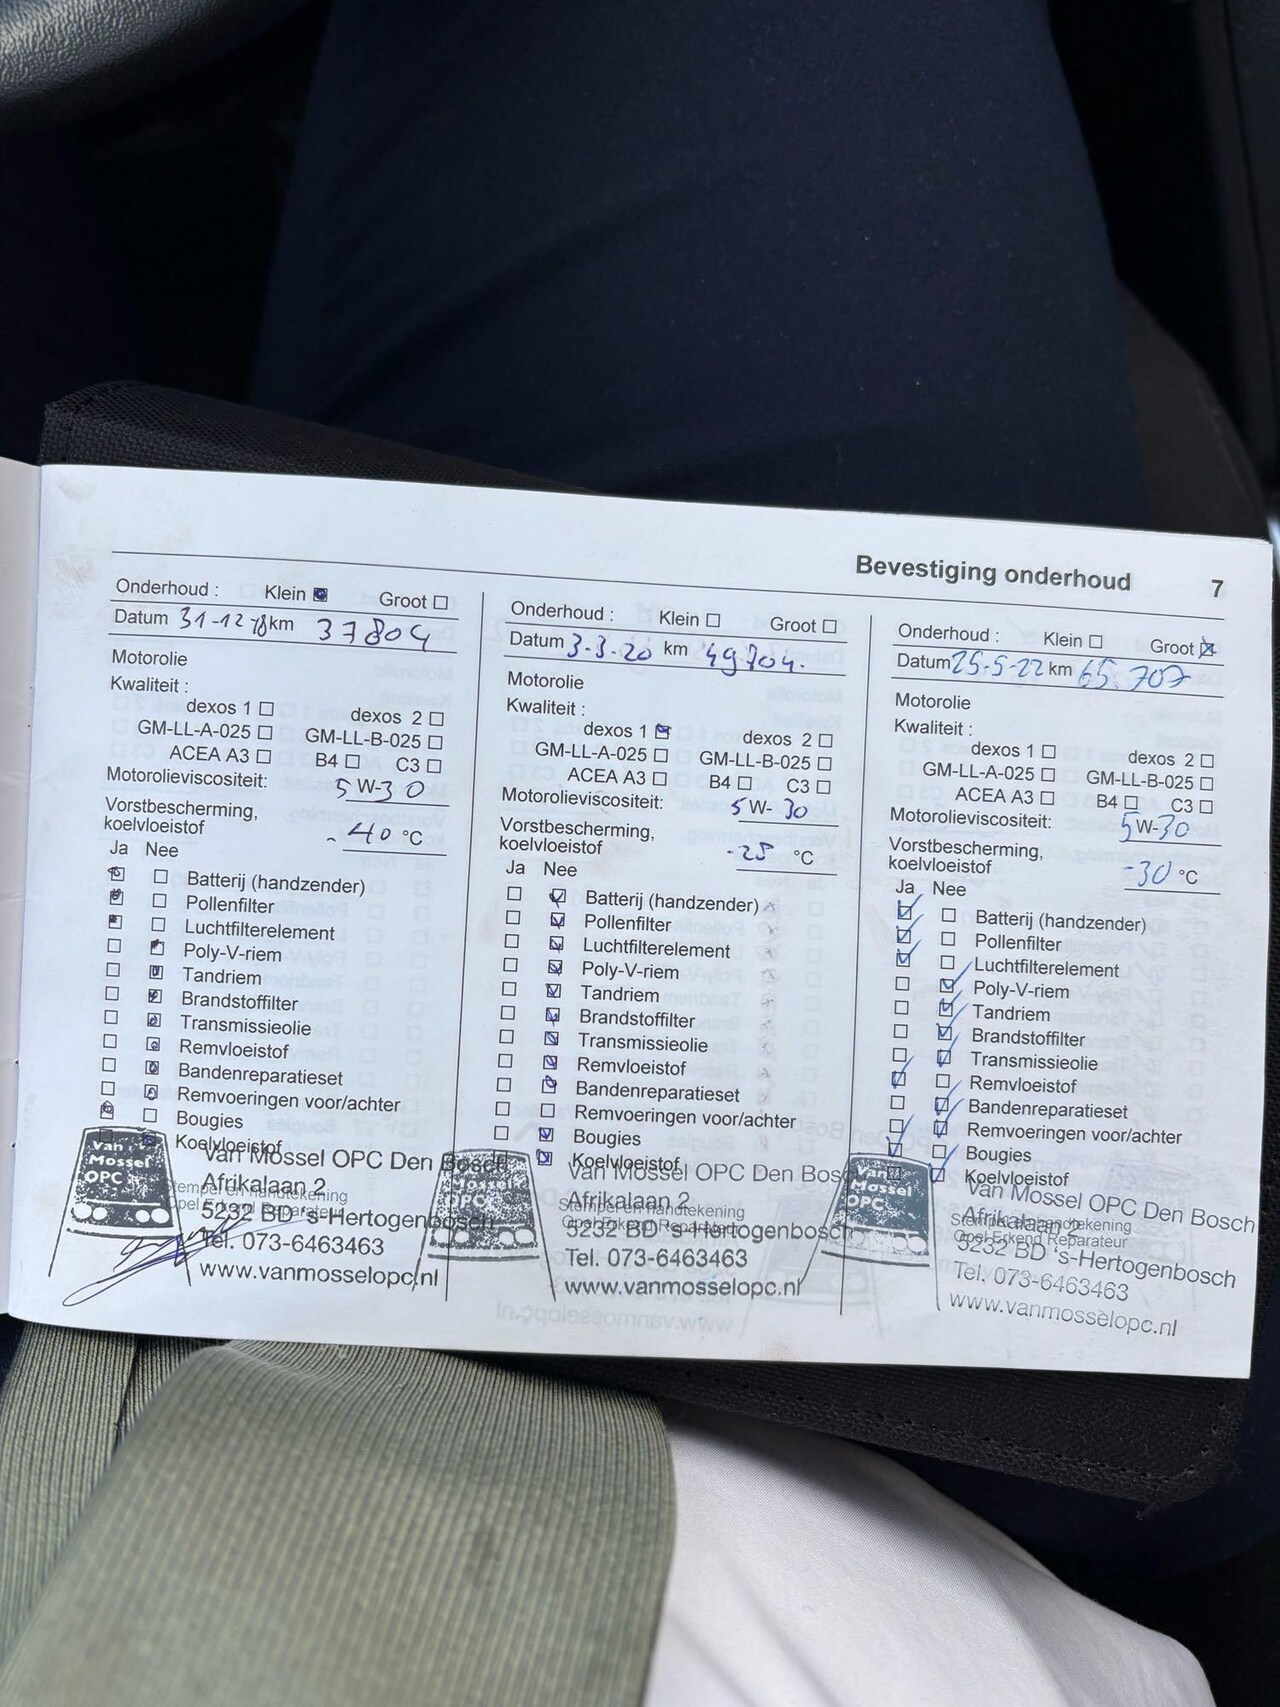 Bevestiging onderhoud 7
Onderhoud : Klein Groot
Datum 31-12 18 km 37804
Motorolie
Kwaliteit :
dexos 1 dexos 2
GM-LL-A-025 GM-LL-B-025
ACEA A3 B4 C3
Motorolieviscositeit: 5 W-30
Vorstbescherming,
koelvloeistof - 40 °C
Ja Nee
Batterij (handzender)
Pollenfilter
Luchtfilterelement
Poly-V-riem
Tandriem
Brandstoffilter
Transmissieolie
Remvloeistof
Bandenreparatieset
Remvoeringen voor/achter
Bougies
Koelvloeistof
Van Mossel OPC
Van Mossel OPC Den Bosch
Stempel en handtekening
Afrikalaan 2
Opel Erkend Reparateur
5232 BD 's-Hertogenbosch
Tel. 073-6463463
www.vanmosselopc.nl
Onderhoud : Klein Groot
Datum 3-3-20 km 49704.
Motorolie
Kwaliteit :
dexos 1 dexos 2
GM-LL-A-025 GM-LL-B-025
ACEA A3 B4 C3
Motorolieviscositeit: 5 W- 30
Vorstbescherming,
koelvloeistof -25 °C
Ja Nee
Batterij (handzender)
Pollenfilter
Luchtfilterelement
Poly-V-riem
Tandriem
Brandstoffilter
Transmissieolie
Remvloeistof
Bandenreparatieset
Remvoeringen voor/achter
Bougies
Koelvloeistof
Van Mossel OPC
Van Mossel OPC Den Bosch
Afrikalaan 2
Stempel en handtekening
Opel Erkend Reparateur
5232 BD 's-Hertogenbosch
Tel. 073-6463463
www.vanmosselopc.nl
Onderhoud : Klein Groot
Datum 25-5-22 km 65.707
Motorolie
Kwaliteit :
dexos 1 dexos 2
GM-LL-A-025 GM-LL-B-025
ACEA A3 B4 C3
Motorolieviscositeit: 5 W-30
Vorstbescherming,
koelvloeistof -30 °C
Ja Nee
Batterij (handzender)
Pollenfilter
Luchtfilterelement
Poly-V-riem
Tandriem
Brandstoffilter
Transmissieolie
Remvloeistof
Bandenreparatieset
Remvoeringen voor/achter
Bougies
Koelvloeistof
Van Mossel OPC
Van Mossel OPC Den Bosch
Afrikalaan 2
Stempel en handtekening
Opel Erkend Reparateur
5232 BD 's-Hertogenbosch
Tel. 073-6463463
www.vanmosselopc.nl